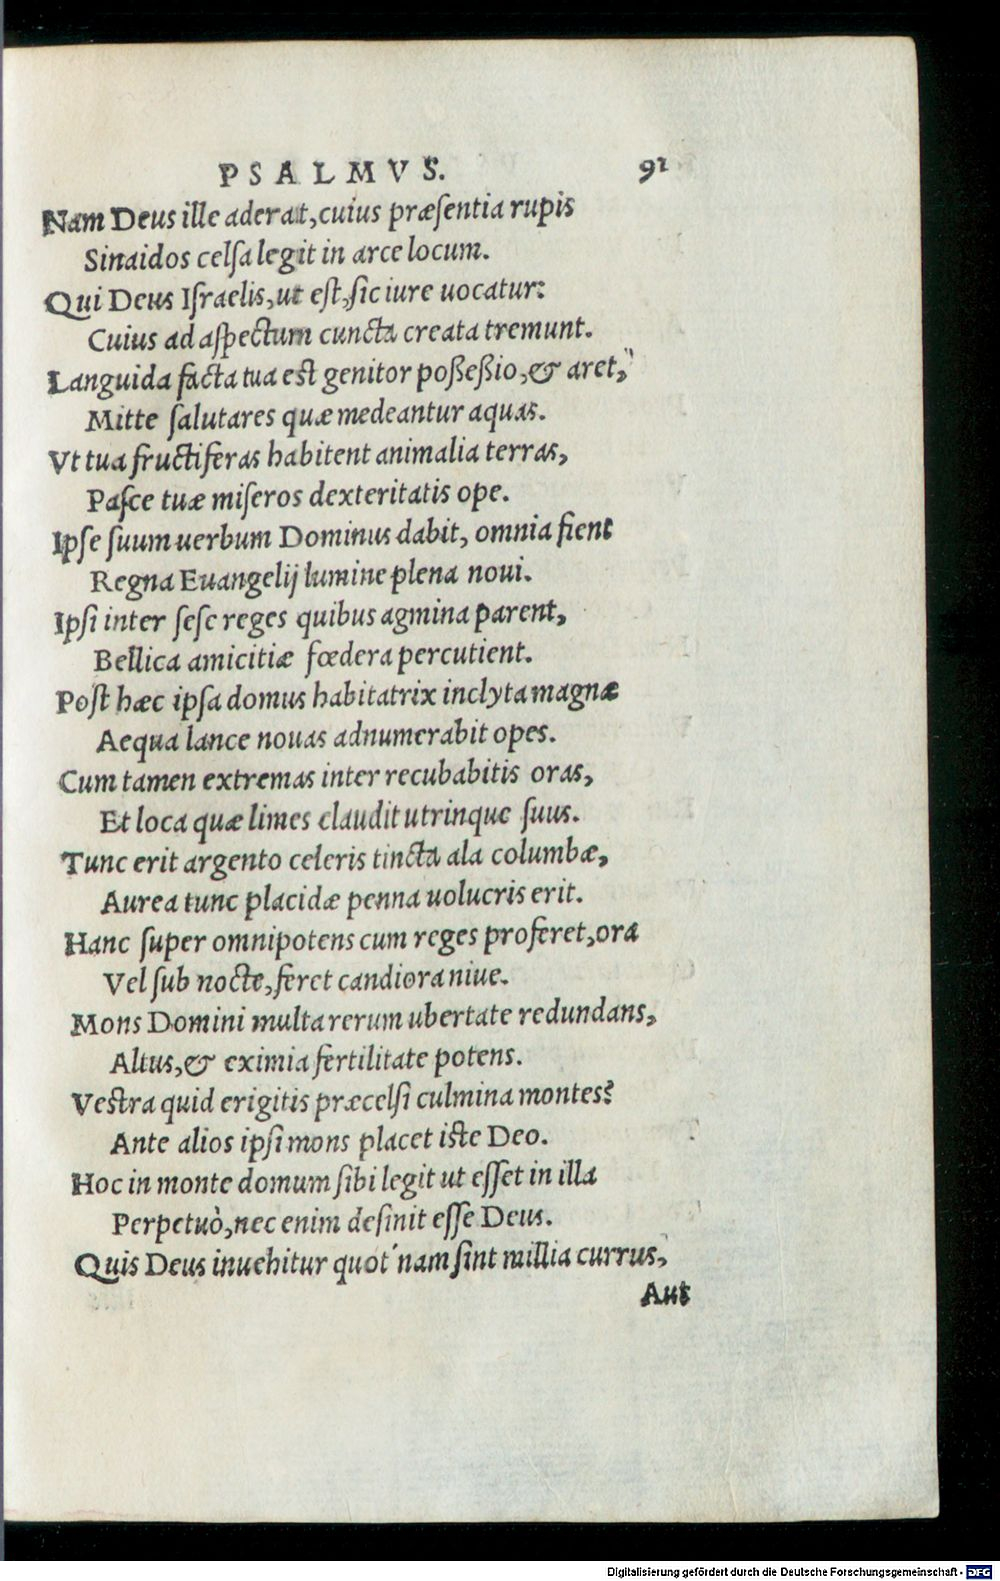 PSALMVS. 91
Nam Deus ille aderat, cuius præſentia rupis
Sinaidos celſa legit in arce locum.
Qui Deus Iſraelis, ut eſt, ſic iure uocatur:
Cuius ad aſpectum cuncta creata tremunt.
Languida facta tua est genitor poßeßio, & aret,
Mitte ſalutares quæ medeantur aquas.
Vt tua fructiferas habitent animalia terras,
Paſce tuæ miſeros dexteritatis ope.
Ipſe ſuum uerbum Dominus dabit, omnia fient
Regna Euangelij lumine plena noui.
Ipſi inter ſeſe reges quibus agmina parent,
Bellica amicitiæ fœdera percutient.
Poſt hæc ipſa domus habitatrix inclyta magnæ
Aequa lance nouas adnumerabit opes.
Cum tamen extremas inter recubabitis oras,
Et loca quæ limes claudit utrinque ſuus.
Tunc erit argento celeris tincta ala columbæ,
Aurea tunc placidæ penna uolucris erit.
Hanc ſuper omnipotens cum reges proferet, ora
Vel ſub nocte, feret candiora niue.
Mons Domini multa rerum ubertate redundans,
Altus, & eximia fertilitate potens.
Vestra quid erigitis præcelſi culmina montes?
Ante alios ipſi mons placet iste Deo.
Hoc in monte domum ſibi legit ut eſſet in illa
Perpetuò, nec enim deſinit eſſe Deus.
Quis Deus inuehitur quot' nam ſint millia currus,
Aut
Digitalisierung gefördert durch die Deutsche Forschungsgemeinschaft - DFG